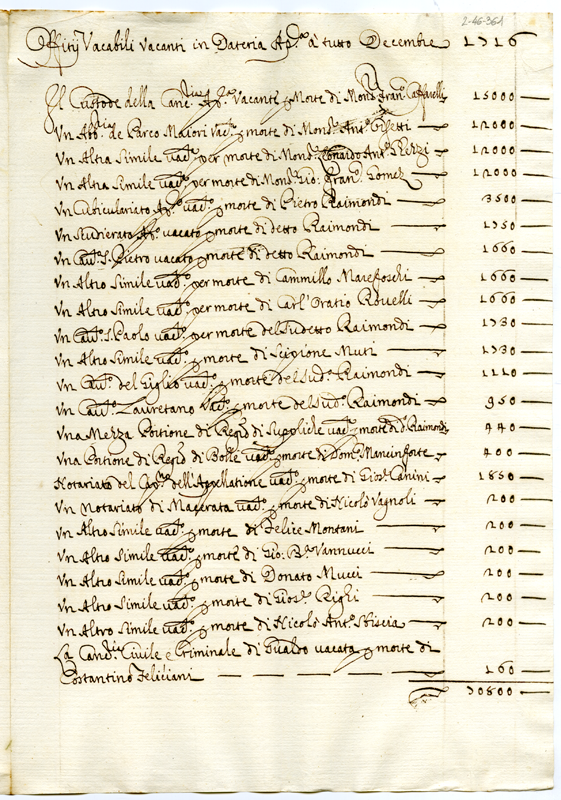 2-46-361
Offitij Vacabili Vacanti in Dateria Ap.ca à tutto Decembre 1716
Il Custode della Canc.ria Ap.ca Vacante p morte di Mons.r Fran.co Caffarelli 15000
Vn Abb.re de Parco Maiori vac.to p morte di Mons.r Ant.o 12000
Vn Altra Simile vac.to per morte di Mons.r Ant.o 12000
Vn Altra Simile vac.to per morte di Mons.r Gio: Fran.co Gomez 12000
Vn Cubiculariato Ap.co vac.to p morte di Pietro Raimondi 3500
Vn Scudierato Ap.co vacato p morte di detto Raimondi 1750
Vn Cau.to S. Pietro vacato p morte di detto Raimondi 1660
Vn Altro Simile vac.to per morte di Cammillo Marefoschi 1660
Vn Altro Simile vac.to per morte di Carl'Oratio Rouelli 1660
Vn Cau.to S. Paolo vac.to per morte del Sudetto Raimondi 1730
Vn Altro Simile vac.to p morte di Scipione Muti 1730
Vn Cau.to del Giglio vac.to p morte del Sud.o Raimondi 1110
Vn Cau.to Lauretano vac.to p morte del Sud.o Raimondi 950
Vna Mezza Portione di Reg.ro di Suppliche vac.ta p morte di d.o Raimondi 440
Vna Portione di Reg.ro di Bolle vac.ta p morte di Dom.co Mancinforte 400
Notariato del dell'Appellatione vac.to p morte di Gios.e Canini 1850
Vn Notariato di Macerata vac.to p morte di Nicolò Vagnoli 200
Vn Altro Simile vac.to p morte di Felice Montani 200
Vn Altro Simile vac.to p morte di Gio: B.a Vannucci 200
Vn Altro Simile vac.to p morte di Donato Mucci 200
Vn Altro Simile vac.to p morte di Gios.e Righi 200
Vn Altro Simile vac.to p morte di Nicolò Ant.o Sbiscia 200
La Canc.ria Ciuile e Criminale di Gualdo vacata p morte di
Costantino Feliciani 160
70800